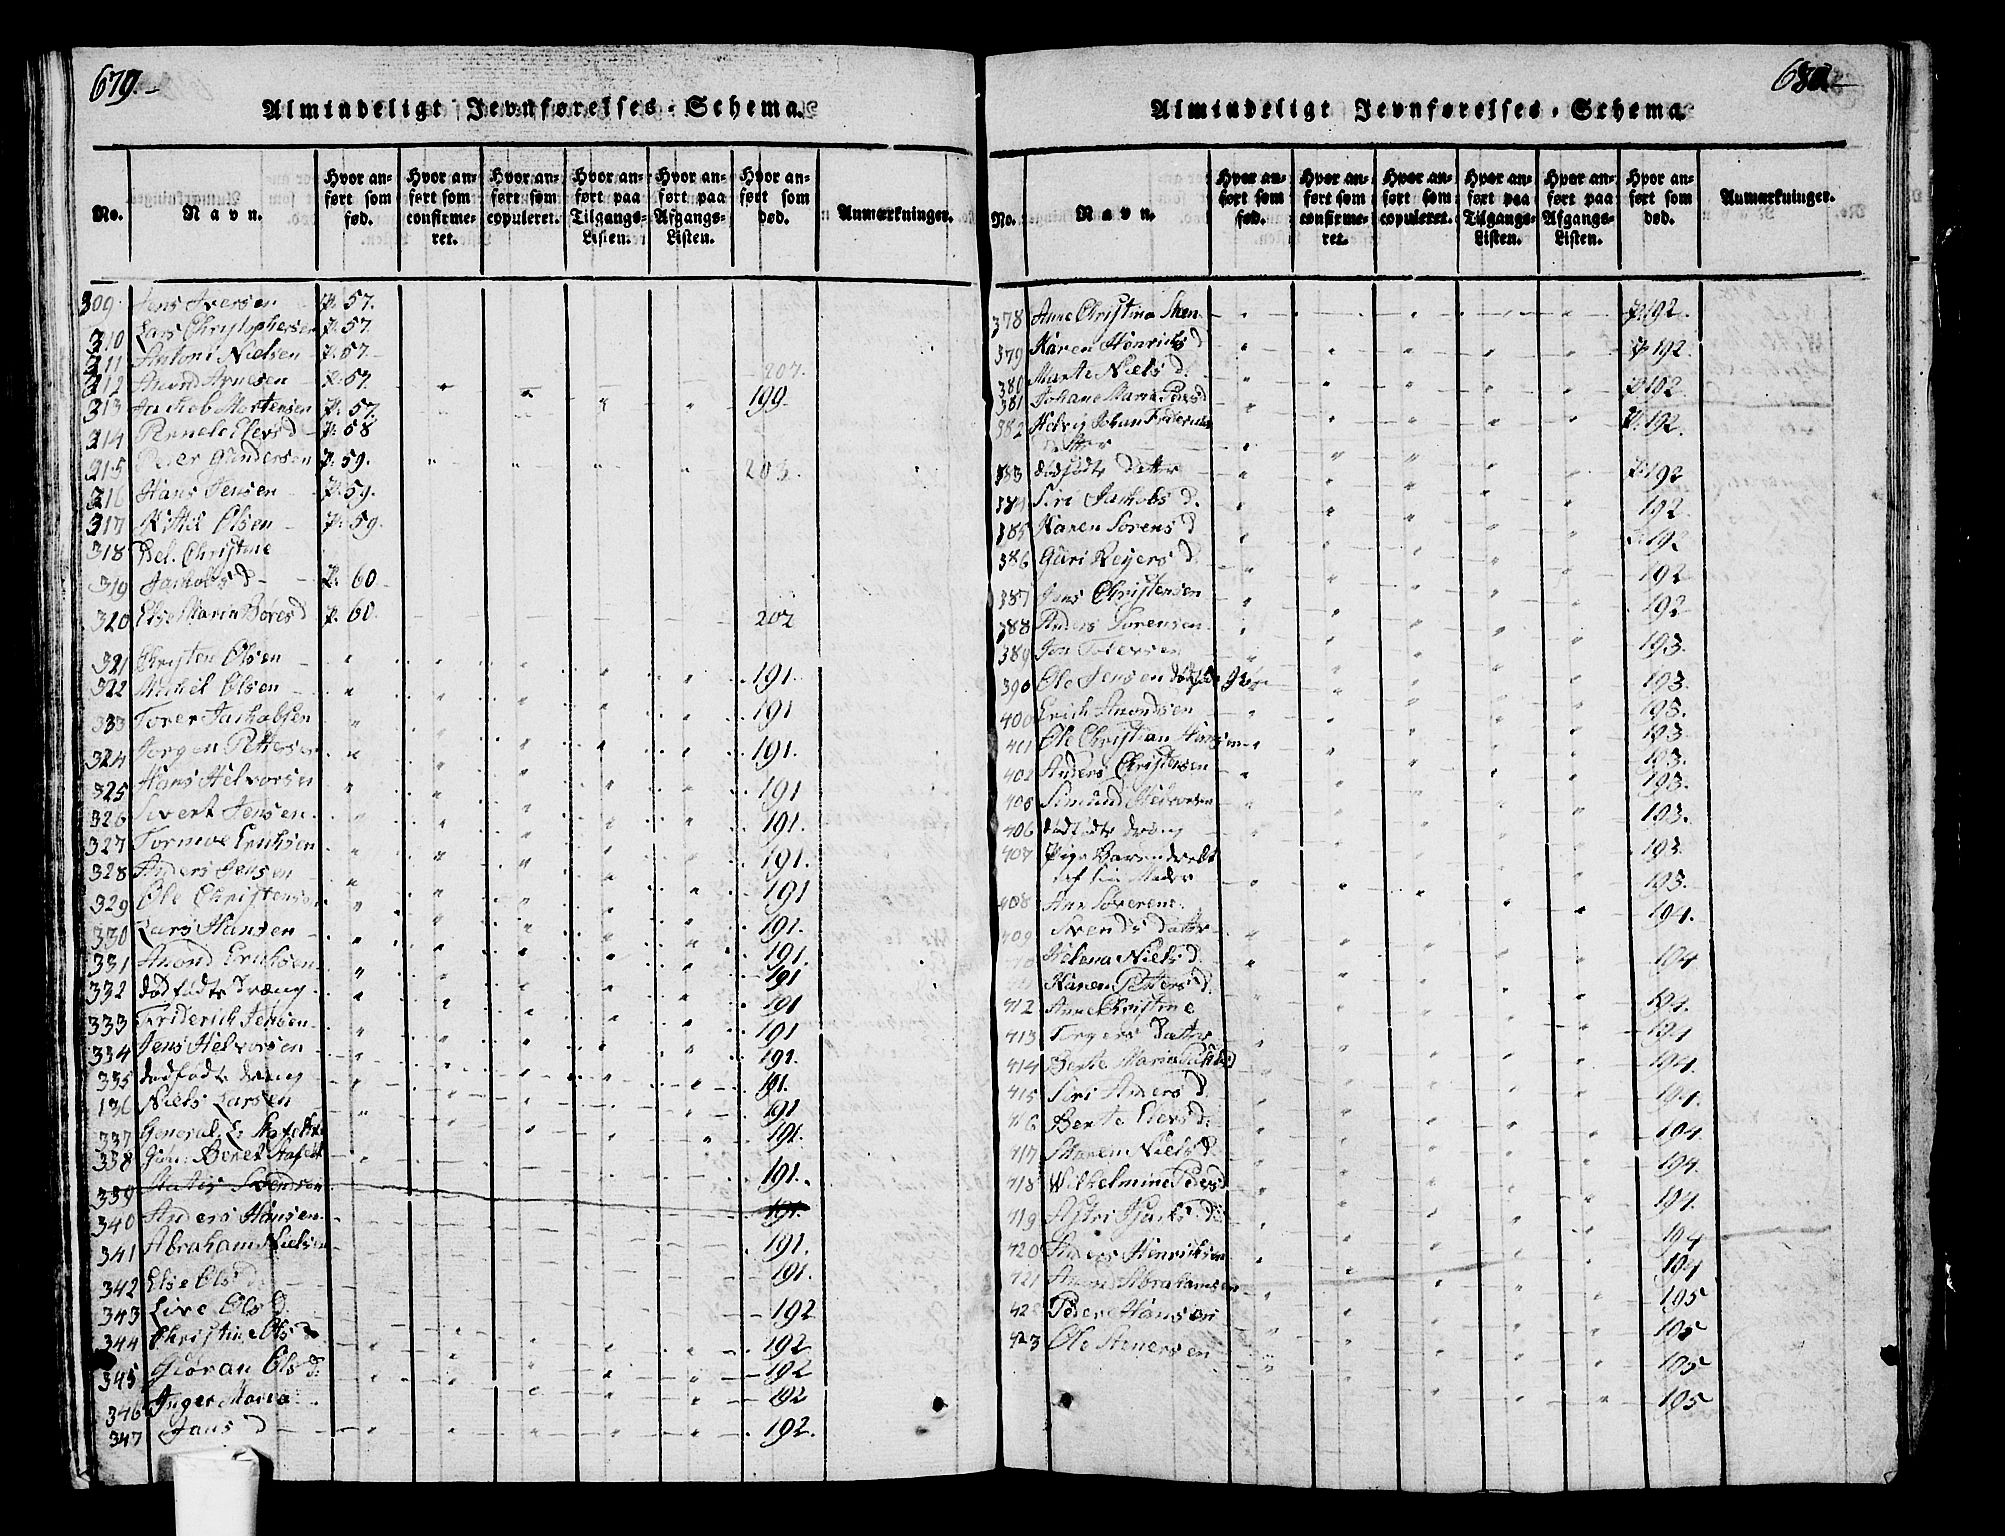 679.
Almindeligt Jevnførelses-Schema.
No.
Navn.
Hvor anført som fød.
Hvor anført som confirmeret.
Hvor anført som copuleret.
Hvor anført paa Tilgangs-Listen.
Hvor anført paa Afgangs-Listen.
Hvor anført som død.
Anmærkninger.
309 Jens Iversen P. 57.
310 Lars Christophersen P. 57
311 Antoni Nielsen P. 57
312 Amond Arnesen P. 57. 207.
313 Jackob Mortensen P. 57. 199
314 Pernele Elers d P. 58
315 Peder Gundersen P. 59. 203.
316 Hans Jensen P. 59.
317 Kittel Olsen P. 59.
318 Bel. Christine
319 Jackobs d P. 60
320 Else Maria Bores d P. 60. 202
321 Christen Olsen 191.
322 Michel Olsen 191
333 Torer Jackobsen 191.
324 Jørgen Pettersen 191
325 Hans Helvorsen 191.
326 Sivert Jensen 191.
327 Tormoe Erichsen 191
328 Anders Jensen 191.
329 Ole Christensen 191.
330 Lars Hansen 191
331 Amond Erichsen 191
332 dødfødte Dræng 191
333 Friderich Jensen 191.
334 Jens Helvorsen 191.
335 dødfødte dræng 191
136 Niels Larsen 191.
337 General L:
338 Benet 191.
339 Svendsen 191.
340 Anders Hansen 191.
341 Abraham Nielsen 191.
342 Else Ols d. 192
343 Live Ols d. 192
344 Christine Ols d 192
345 Giøran Ols d. 192
346 Inger Maria
347 Jans d 192.
680
Almindeligt Jevnførelses-Schema
No.
Navn.
Hvor anført som fød.
Hvor anført som confirmeret.
Hvor anført som copuleret.
Hvor anført paa Tilgangs-Listen.
Hvor anført paa Afgangs-Listen.
Hvor anført som død.
Anmærkninger.
378 Anne Christina P. 192.
379 Karen Henrichs d P. 192.
380 Marte Niels d. P. 192
381 Johane Maria Peders d P. 192.
382 Helvig Johan Friderichs
datter P. 192
383 dødfødte Datter 192
384 Siri Jackobs d. 192
385 Karen Sørens d 192
386 Guri Reyers d. 192
387 Jens Christensen 193.
388 Anders Sørensen 193.
389 Jon 193.
390 Ole Jensen 193.
400 Erich Amondsen 193.
401 Ole Christian Hansen 193.
402 Anders Christensen 193.
408 Simund Helvorsen 193.
406 dødfødte dræng 193.
407 Pige Baren
af sin Moder 194.
408 Ane Sørerene
409 Svends Datter 194
Helena Niels d. 194.
Karen Petters d. 194
412 Anne Christine
413 Torgers Datter 194.
414 Berte Maria 194.
415 Siri Anders d. 194
416 Berte Elers d: 194.
417 Maren Niels d. 194.
418 Wilhelmine Peders d 194
419 Astri Isacks d: 194
420 Anders Henrichsen 195
421 Amund Abrahamsen 195
422 Peder Hansen 195
423 Ole Stenersen 195